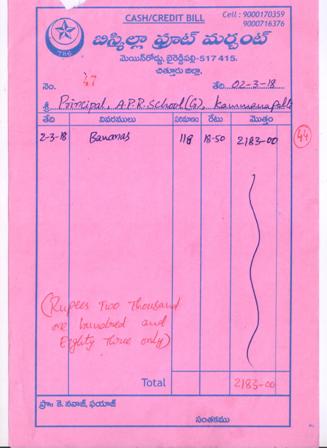 CASH/CREDIT BILL
Cell : 9000170359
9000716376
786
బిస్మిల్లా ఫ్రూట్ మర్చంట్
మెయిన్‌రోడ్డు, బైరెడ్డిపల్లి-517 415.
చిత్తూరు జిల్లా.
నెం. 47
తేది 02-3-18
శ్రీ Principal, A.P.R. School(G), Kammanapalli
తేది వివరములు పరిమాణం రేటు మొత్తం
2-3-18 Bananas 118 18-50 2183-00
44
(Rupees Two Thousand
one hundred and
Eighty Three only)
Total 2183-00
ప్రొ: కె. నవాజ్, ఫయాజ్
సంతకము